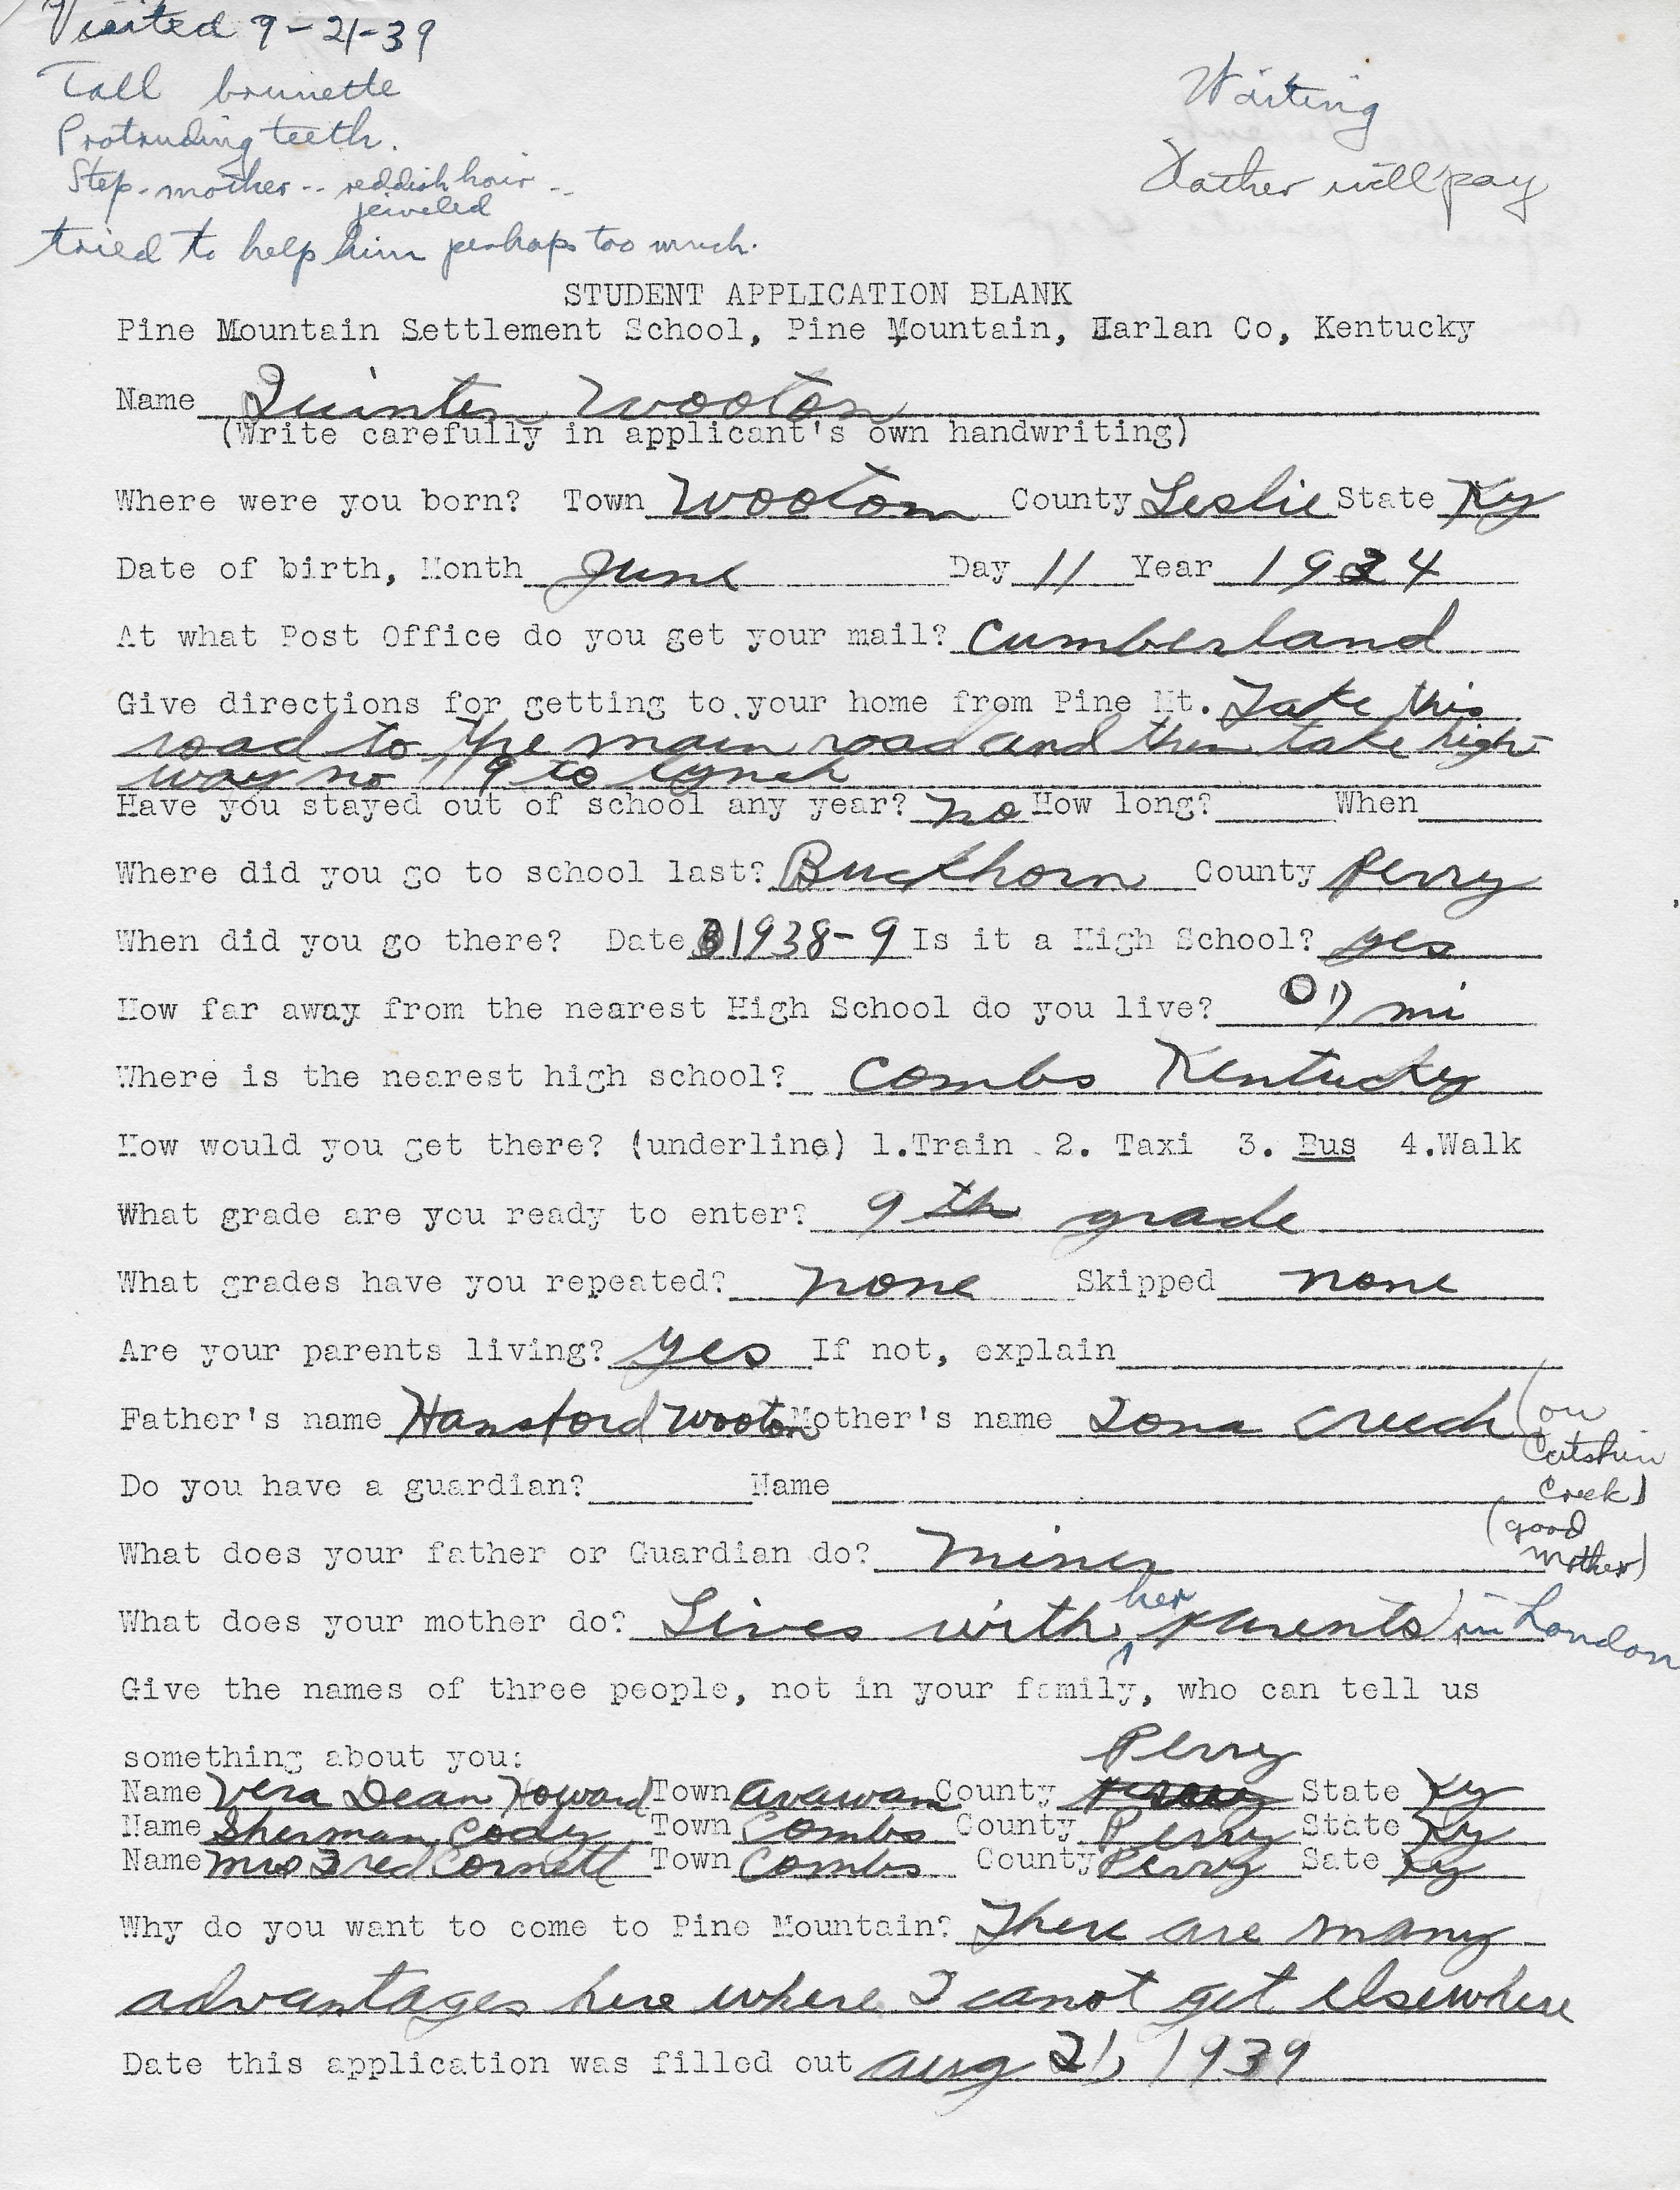 Visited 9-21-39
Tall brunette
Protruding teeth.
Step-mother -- reddish hair --
jeweled
tried to help him perhaps too much.
Waiting
Father will pay
STUDENT APPLICATION BLANK
Pine Mountain Settlement School, Pine Mountain, Harlan Co, Kentucky
Name Quinten Wooton
(Write carefully in applicant's own handwriting)
Where were you born? Town Wooton County Leslie State Ky
Date of birth, Month June Day 11 Year 1924
At what Post Office do you get your mail? Cumberland
Give directions for getting to your home from Pine Mt. Take this
road to the main road and then take high-
way no 119 to Lynch
Have you stayed out of school any year? no How long? When
Where did you go to school last? Buckhorn County Perry
When did you go there? Date 1938-9 Is it a High School? yes
How far away from the nearest High School do you live? mi
Where is the nearest high school? Combs Kentucky
How would you get there? (underline) 1.Train 2. Taxi 3. Bus 4.Walk
What grade are you ready to enter? 9th grade
What grades have you repeated? none Skipped none
Are your parents living? yes If not, explain
Father's name Hansford Wooton Mother's name Iona Creech (on
Cutshin
Creek)
Do you have a guardian? Name
(good
mother)
What does your father or Guardian do? Miner
What does your mother do? Lives with her parents in London
Give the names of three people, not in your family, who can tell us
something about you:
Name Vera Dean Howard Town Avawam County Perry State Ky
Name Sherman Cody Town Combs County Perry State Ky
Name Mrs Fred Cornett Town Combs County Perry Sate Ky
Why do you want to come to Pine Mountain? There are many
advantages here where I canot get elsewhere
Date this application was filled out Aug 21, 1939